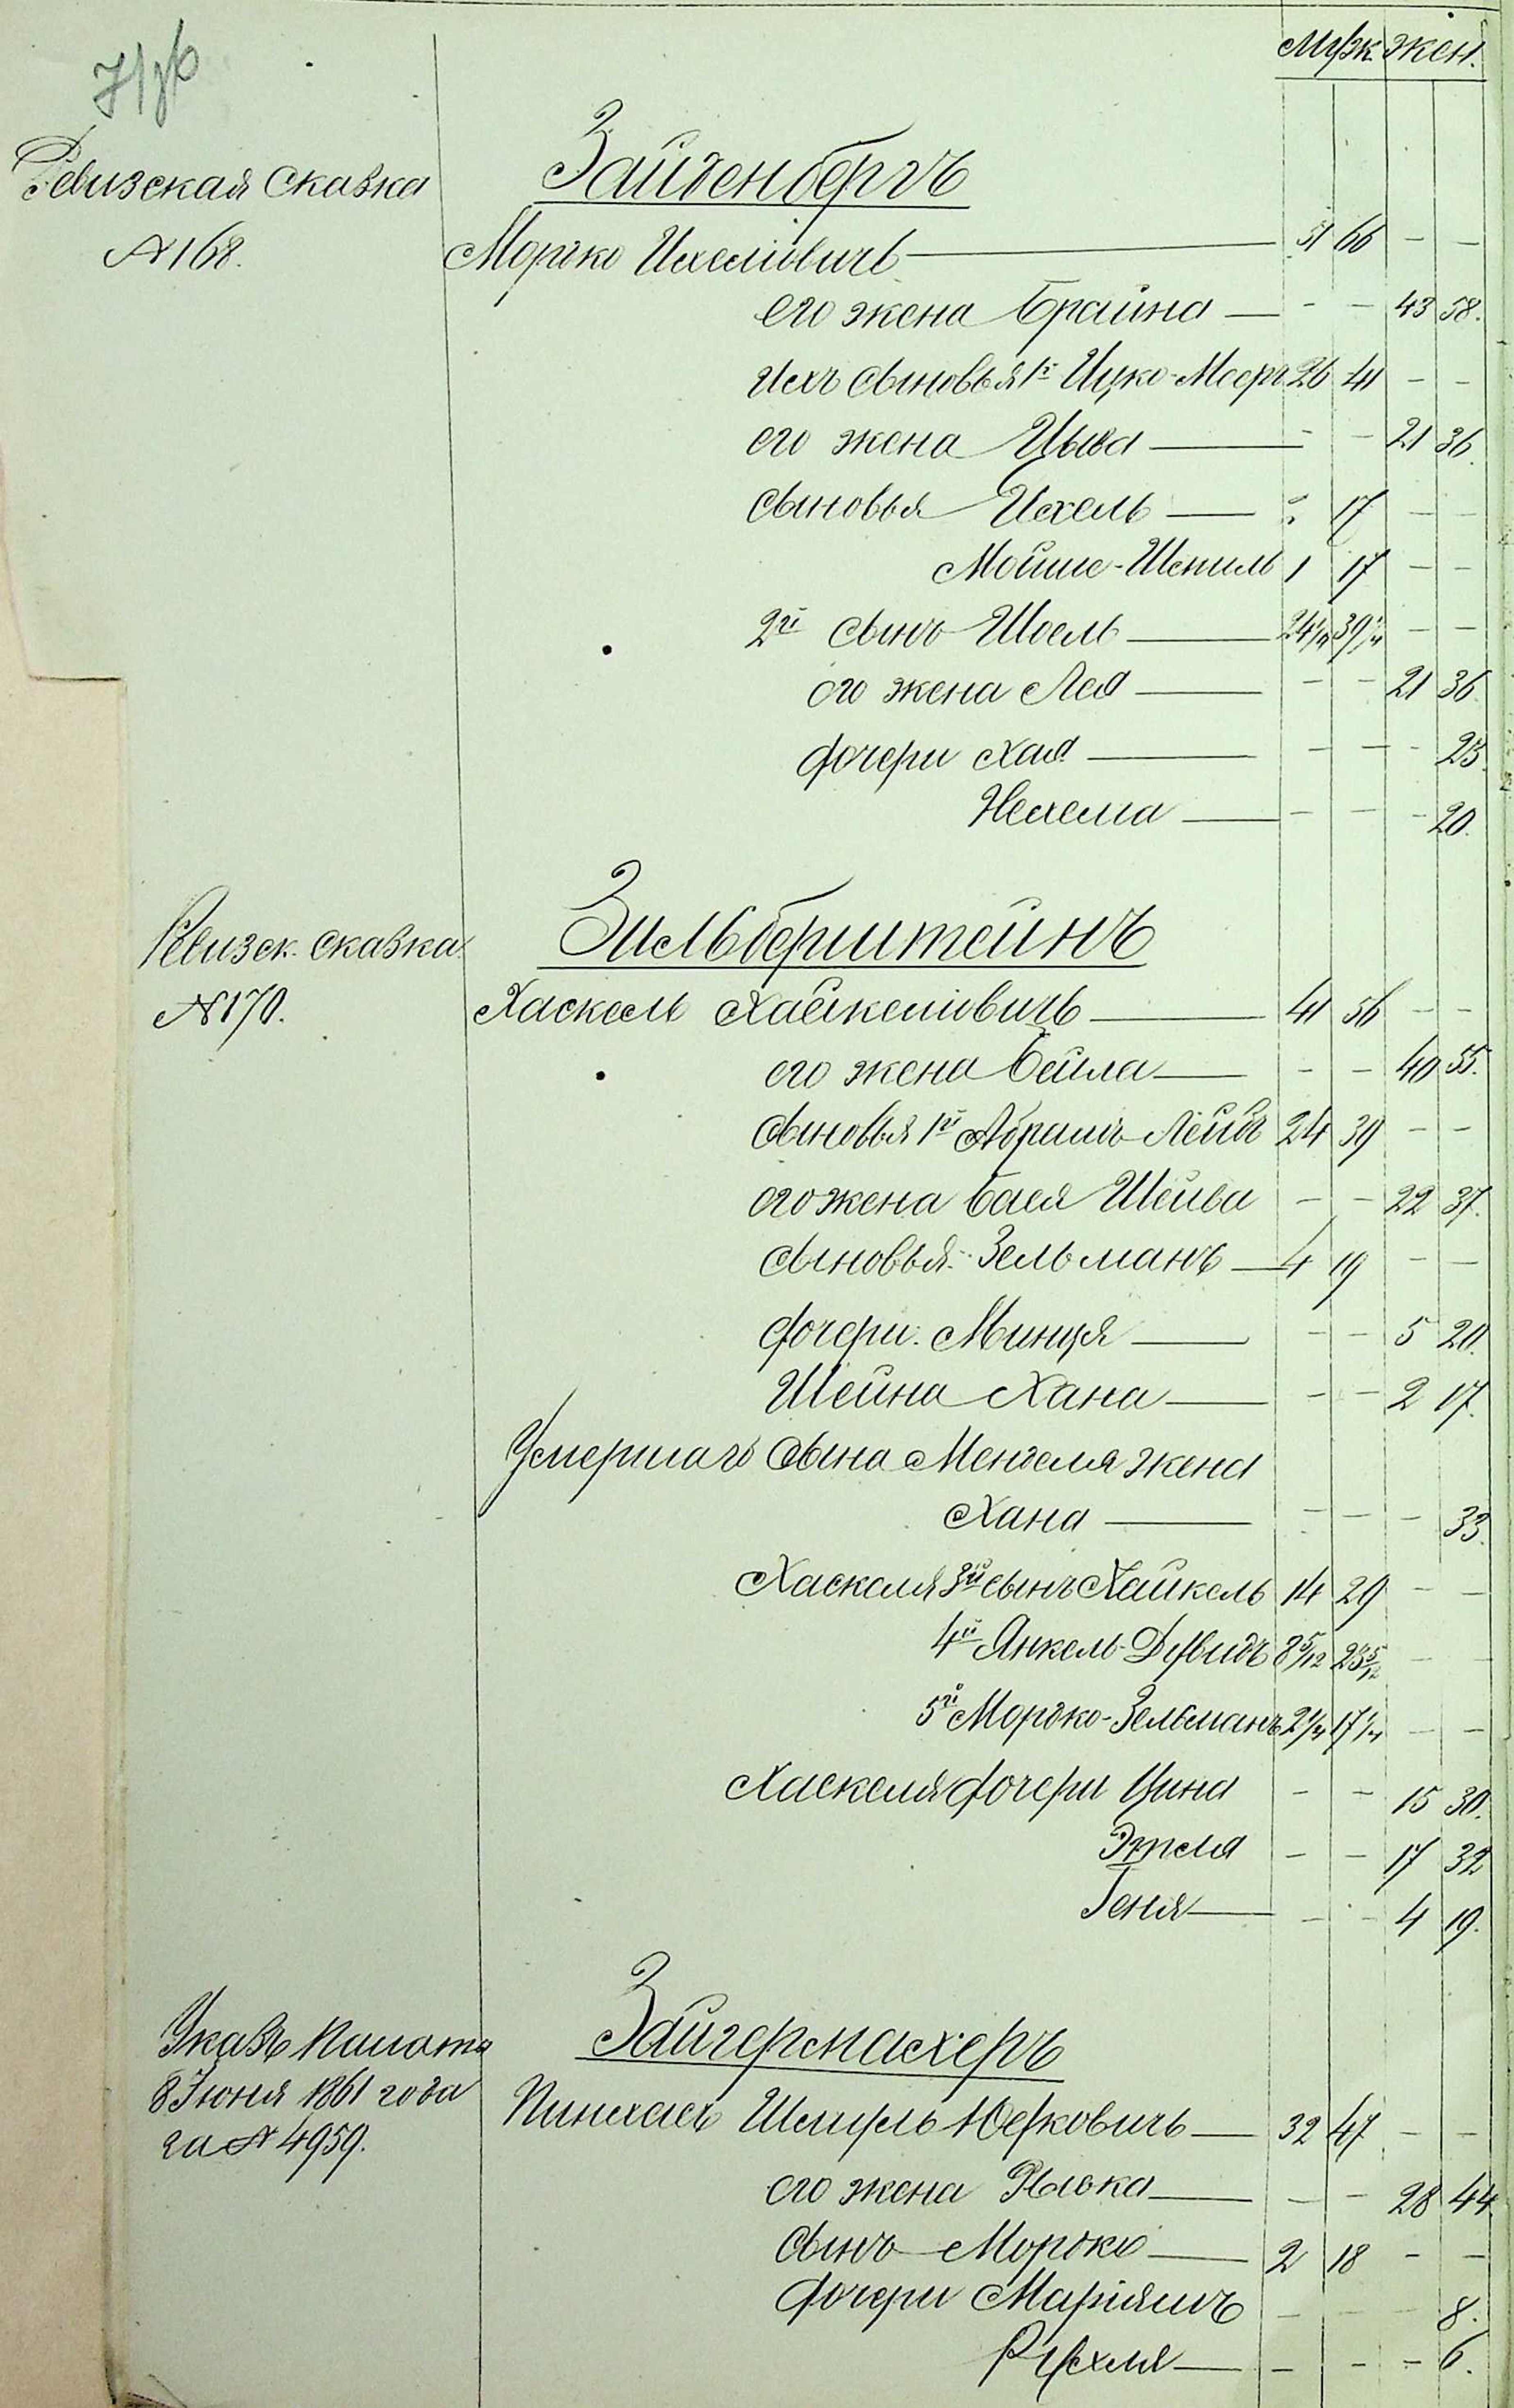 Муж. Жен.
Ревизская сказка
№ 168.
Зайденбергъ
Мортко Ихелiовичъ — 51 66 - -
его жена Брайна — - - 43 58.
ихъ сыновья 1й Ицко-Меер 26 41 - -
его жена Цывa — - - 21 36.
сыновья Ихель — " 17 - -
Мойше-Шепшль 1 17 - -
2й сынъ Шоель — 24 1/4 39 1/4 - -
его жена Лея — - - 21 36.
дочери Хая — - - - 23.
Нехема — - - - 20.
Ревизск. сказка
№ 170.
Зильберштейнъ
Хаскель Хайкелiовичъ — 41 56 - -
его жена Бейла — - - 40 55.
сыновья 1й Абрамъ-Лейбъ 24 39 - -
его жена Бася Шейва - - 22 37.
сыновья Зельманъ — 4 19 - -
дочери Минця — - - 5 20.
Шейна Хана — - - 2 17.
Умершаго сына Менделя жена
Хана — - - - 33.
Хаскеля 3й сынъ Хайкель 14 29 - -
4й Янкель-Дувидъ 8 5/12 23 5/12 - -
5й Мортко-Зельманъ 2 1/4 17 1/4 - -
Хаскеля дочери Цина - - 15 30.
Этеля - - 17 32
Геня — - - 4 19.
Указъ Палаты
8 Iюня 1861 года
за № 4959.
Зайгермахеръ
Пинхасъ Шмуль Юдковичъ — 32 47 - -
его жена Рывка — - - 28 44.
сынъ Мортко — 2 18 - -
дочери Марiямъ - - - 8.
Рухля — - - - 6.